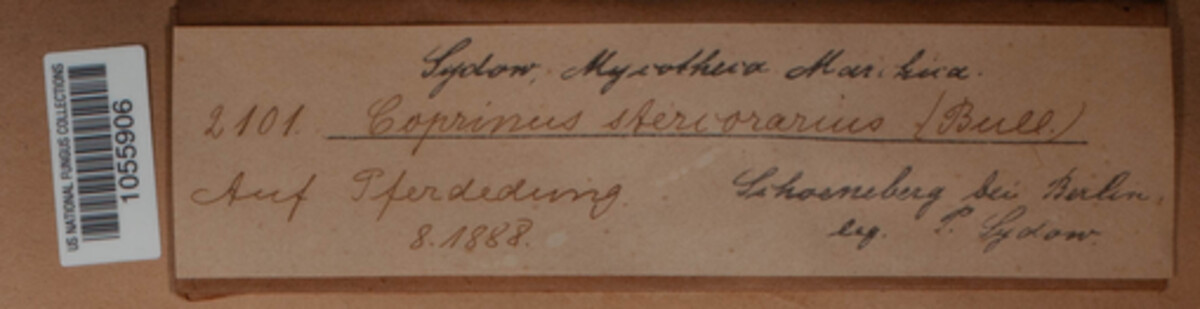 US NATIONAL FUNGUS COLLECTIONS
1055906
Sydow, Mycotheca Marchica.
2101. Coprinus stercorarius (Bull.)
Auf Pferdedung.
8.1888.
Schoeneberg bei Berlin,
leg. P. Sydow.